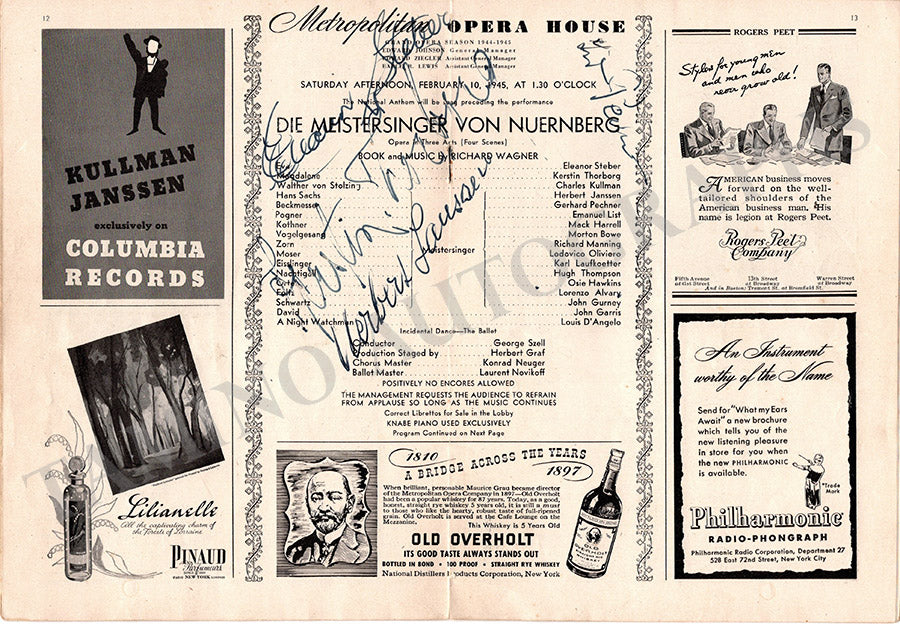 12
13
KULLMAN
JANSSEN
exclusively on
COLUMBIA
RECORDS
Lilianelle
All the captivating charm of
the Forests of Lorraine
PINAUD
Parfumeurs
PARIS NEW YORK LONDON
Metropolitan OPERA HOUSE
GRAND OPERA SEASON 1944-1945
EDWARD JOHNSON General Manager
EDWARD ZIEGLER Assistant General Manager
EARLE R. LEWIS Assistant General Manager
SATURDAY AFTERNOON, FEBRUARY 10, 1945, AT 1.30 O'CLOCK
The National Anthem will be sung preceding the performance
DIE MEISTERSINGER VON NUERNBERG
Opera in Three Acts (Four Scenes)
BOOK and MUSIC BY RICHARD WAGNER
Eva Eleanor Steber
Magdalene Kerstin Thorborg
Walther von Stolzing Charles Kullman
Hans Sachs Herbert Janssen
Beckmesser Gerhard Pechner
Pogner Emanuel List
Kothner Mack Harrell
Vogelgesang Morton Bowe
Zorn Richard Manning
Moser Meistersinger Lodovico Oliviero
Eisslinger Karl Laufkoetter
Nachtigall Hugh Thompson
Ortel Osie Hawkins
Foltz Lorenzo Alvary
Schwartz John Gurney
David John Garris
A Night Watchman Louis D'Angelo
Incidental Dance—The Ballet
Conductor George Szell
Production Staged by Herbert Graf
Chorus Master Konrad Neuger
Ballet Master Laurent Novikoff
POSITIVELY NO ENCORES ALLOWED
THE MANAGEMENT REQUESTS THE AUDIENCE TO REFRAIN
FROM APPLAUSE SO LONG AS THE MUSIC CONTINUES
Correct Librettos for Sale in the Lobby
KNABE PIANO USED EXCLUSIVELY
Program Continued on Next Page
Eleanor Steber
Herbert Janssen
1810
A BRIDGE ACROSS THE YEARS
1897
When brilliant, personable Maurice Grau became director
of the Metropolitan Opera Company in 1897—Old Overholt
had been a popular whiskey for 87 years. Today, as a good,
honest, straight rye whiskey 5 years old, it is still a must
to those who like the hearty, robust taste of full-ripened
grain. Old Overholt is served at the Cafe Lounge on the
Mezzanine.
This Whiskey is 5 Years Old
OLD OVERHOLT
ITS GOOD TASTE ALWAYS STANDS OUT
BOTTLED IN BOND • 100 PROOF • STRAIGHT RYE WHISKEY
National Distillers Products Corporation, New York
OLD
OVERHOLT
ROGERS PEET
Styles for young men
and men who
never grow old!
AMERICAN business moves
forward on the well-
tailored shoulders of the
American business man. His
name is legion at Rogers Peet.
Rogers Peet
Company
Fifth Avenue 13th Street Warren Street
at 41st Street at Broadway at Broadway
And in Boston: Tremont St. at Bromfield St.
An Instrument
worthy of the Name
Send for "What my Ears
Await" a new brochure
which tells you of the
new listening pleasure
in store for you when
the new PHILHARMONIC
is available.
Trade
Mark
Philharmonic
RADIO-PHONOGRAPH
Philharmonic Radio Corporation, Department 27
528 East 72nd Street, New York City